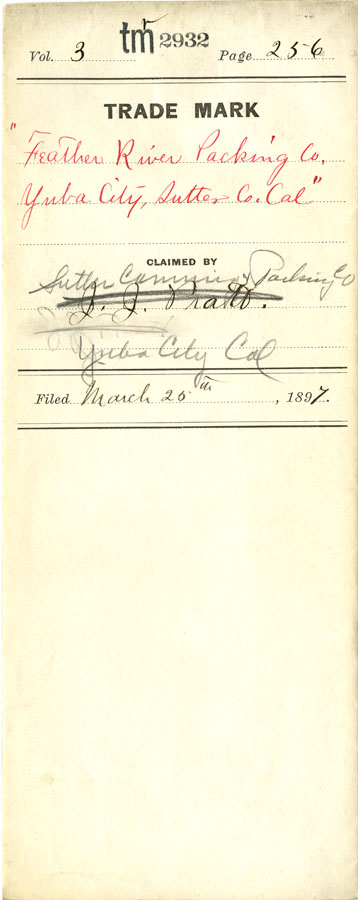 tm 2932
Vol. 3 Page 256
TRADE MARK
"Feather River Packing Co.
Yuba City, Sutter Co. Cal"
CLAIMED BY
Sutter Canning & Packing Co
Yuba City Cal
Filed March 25th, 1897.